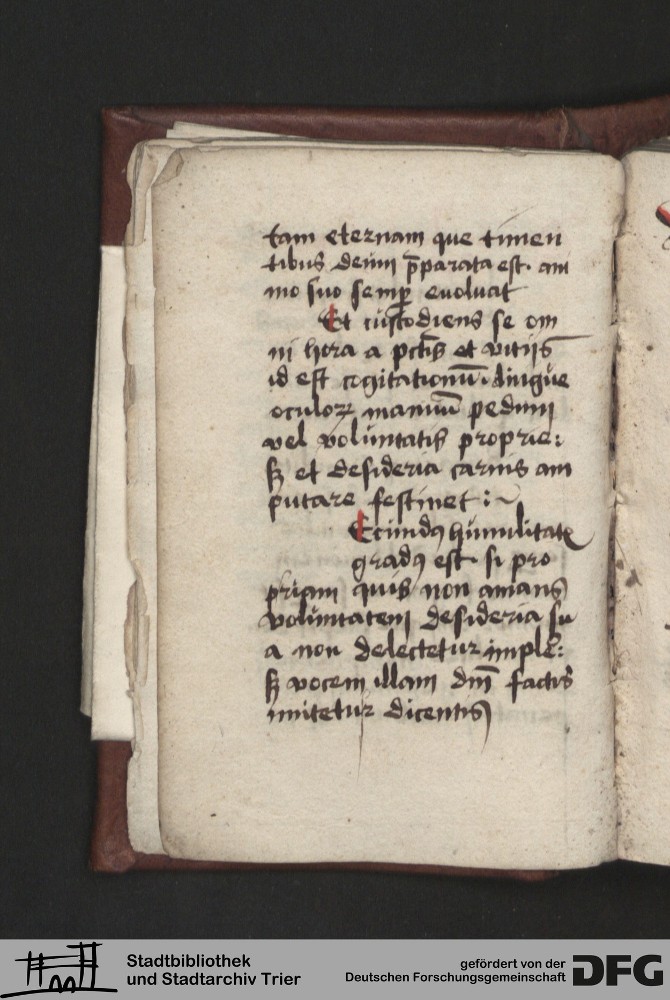 tam eternam que timen
tibus deum p̄parata est· ani
mo suo semꝑ euoluat
Et custodiens se om
ni hora a pctīs et vitijs
id est cogitationū· lingue
oculoꝝ manuū pedum
vel voluntatis proprie:
sꝫ et desideria carnis am
putare festinet:~
Ecundꝰ humilitatꝭ
gradꝰ est si pro
priam quis non amans
voluntatem desideria su
a non delectetur imple:
sꝫ vocem illam dnī factis
imitetur dicentis
Stadtbibliothek
und Stadtarchiv Trier
gefördert von der
Deutschen Forschungsgemeinschaft
DFG